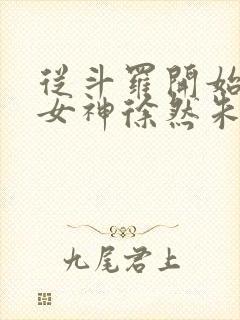 從斗羅開始
女神徐然朱
九尾君上